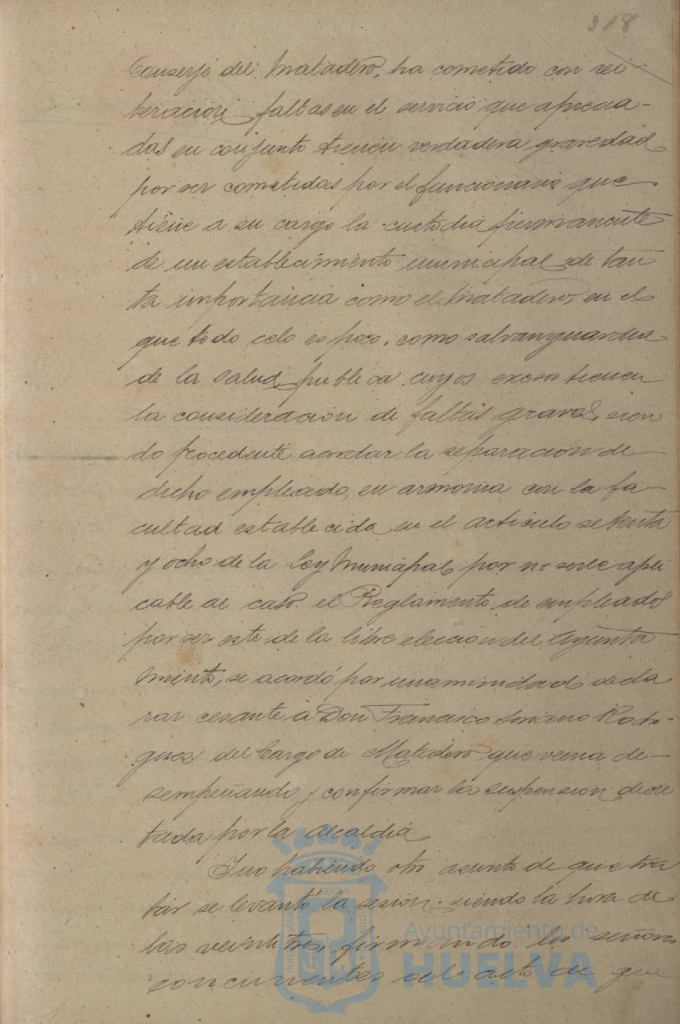 318
Conserje del Matadero, ha cometido con rei-
teración faltas en el servicio que aprecia-
das en conjunto tienen verdadera gravedad
por ser cometidas por el funcionario que
tiene a su cargo la custodia permanente
de un establecimiento municipal de tan
ta importancia como el Matadero, en el
que todo celo es poco, como salvanguardia
de la salud publica cuyos excesos tienen
la consideración de faltas graves, sien
do procedente acordar la separacion de
dicho empleado, en armonia con la fa-
cultad establecida en el articulo setenta
y ocho de la Ley Municipal, por no serle apli
cable al caso el Reglamento de empleados
por ser este de la libre eleccion del Ayunta
miento, se acordó por unanimidad decla
rar cesante a Don Francisco Soriano Rodri
guez del Cargo de Matadero que venia de-
sempeñando y confirmar la suspension decre
tada por la Alcaldia
Y no habiendo otro asunto de que tra
tar se levantó la sesión siendo la hora de
las veintitres, firmando los señores
concurrentes del acto de que
Ayuntamiento de
HUELVA